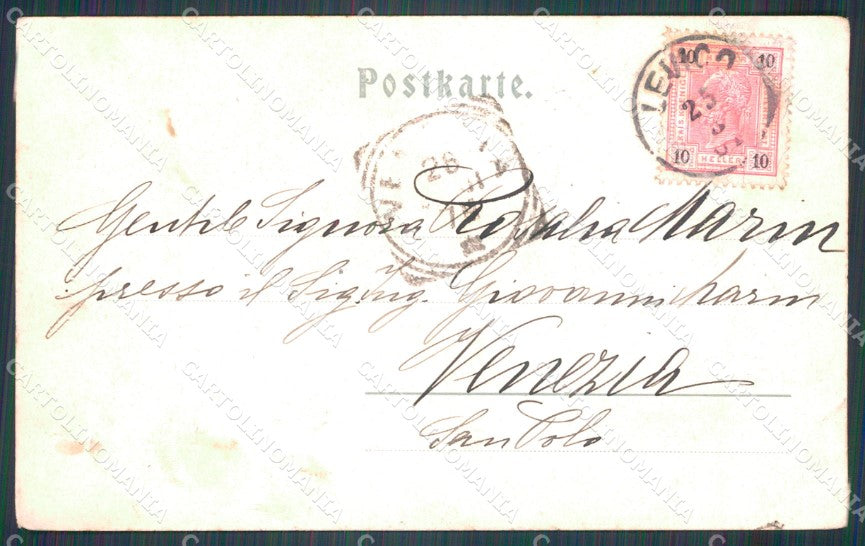 Postkarte.
LEVICO
25
10 10
10 HELLER 10
26
Gentil Signora Rosalia Marin
presso il Sig. Ing. Giovanni Marin
Venezia
San Polo
CARTOLINOMANIA